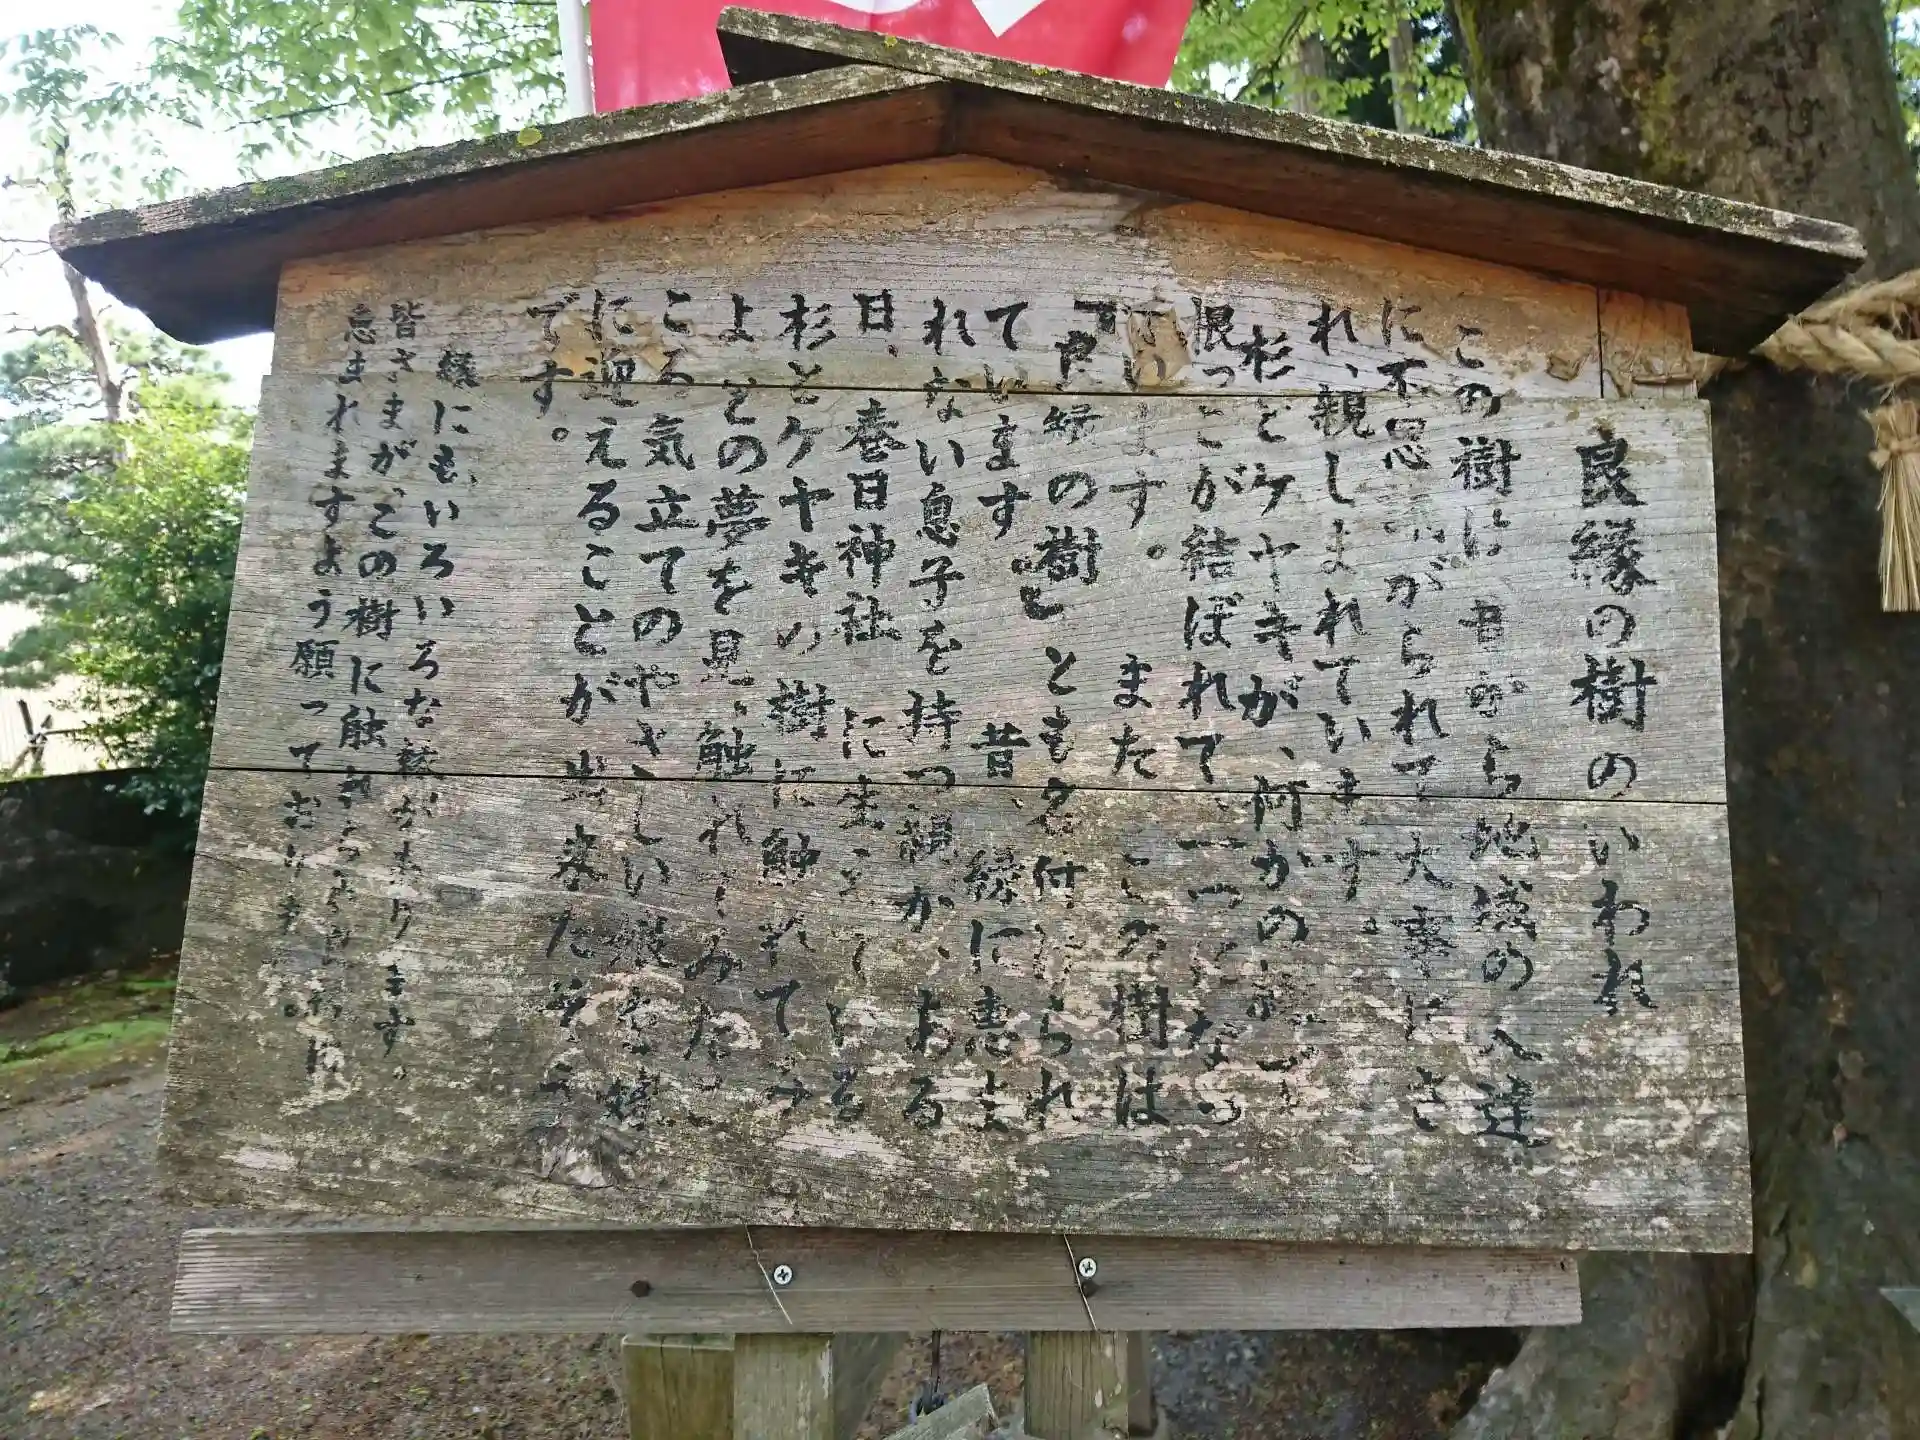 良縁の樹のいわれ
この樹は昔から地域の人達
に不思がられて大事にさ
れ、親しまれています。
杉とケヤキが、何かの
根っこが結ばれて、一つになっ
ています。また この樹は
「良縁の樹」とも名付けられ
ています。昔、縁に恵ま
れない息子を持つ親が、ある
日、春日神社 に立っている
杉とケヤキの樹に触れてみ
よとの夢を見、触れてみた
ところ気立てのやさしい娘を嫁
に迎えることが出来たそう
です。
縁にもいろいろな縁があります。
皆さまが、この樹に触れ
恵まれますよう願っており